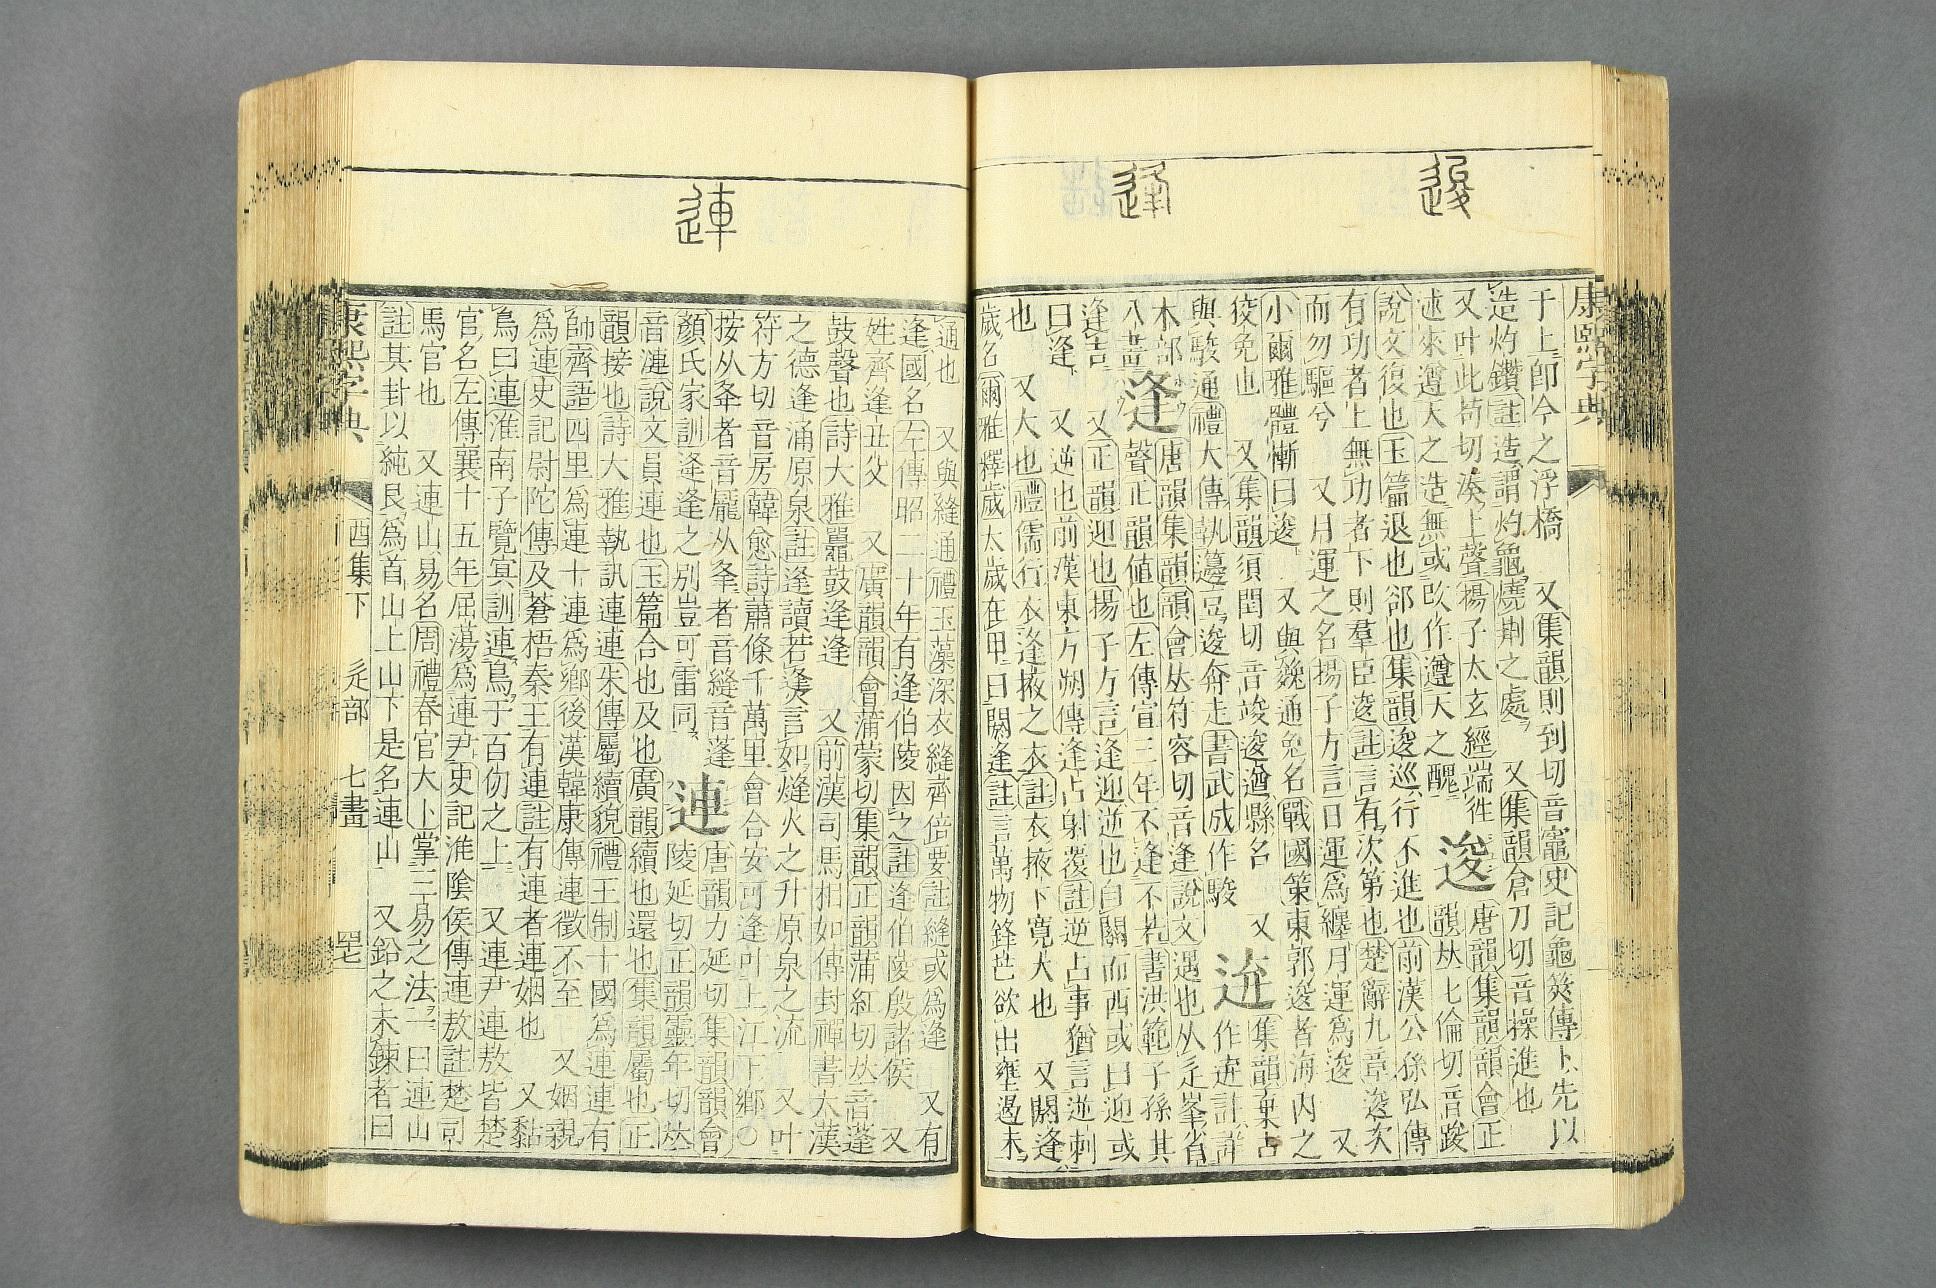 逡
逢
康熙字典
于上卽今之浮橋 又集韻則到切音竈史記龜筴傳卜先以
造灼鑽註造謂灼龜燒荆之處 又集韻倉刀切音操進也
又叶此苟切湊上聲揚子太玄經端往
述來遵天之造無或改作遵天之醜
逡 唐韻集韻韻會正
韻𠀤七倫切音踆
說文復也玉篇退也郤也集韻逡巡行不進也前漢公孫弘傳
有功者上無功者下則羣臣逡註言有次第也楚辭九章逡次
而勿驅兮 又月運之名揚子方言日運爲纏月運爲逡 又
小爾雅體慚曰逡 又與㕙通兔名戰國策東郭逡者海內之
狡兔也 又集韻須閏切音峻逡遒縣名 又
與駿通禮大傳執籩豆逡奔走書武成作駿
集韻棄古
註詳
木部
八畫
逢 唐韻集韻韻會𠀤符容切音逢說文遇也从辵峯省
聲正韻值也左傳宣三年不逢不若書洪範子孫其
逢吉 又正韻迎也揚子方言逢迎逆也自關而西或曰迎或
曰逢 又逆也前漢東方朔傳逢占射覆註逆占事猶言逆刺
也 又大也禮儒行衣逢掖之衣註衣掖下寬大也 又閼逢
歲名爾雅釋歲太歲在甲曰閼逢註言萬物鋒芒欲出壅遏未
連
通也 又與縫通禮玉藻深衣縫齊倍要註縫或爲逢 又有
逢國名左傳昭二十年有逢伯陵因之註逢伯陵殷諸侯 又
姓齊逢丑父 又廣韻韻會蒲蒙切集韻正韻蒲紅切𠀤音蓬
鼓聲也詩大雅鼉鼓逢逢 又前漢司馬相如傳封禪書大漢
之德逢涌原泉註逢讀若㷭言如㷭火之升原泉之流 又叶
符方切音房韓愈詩蕭條千萬里會合安可逢叶上江下鄉〇
按从夆者音龐从夆者音縫音蓬
顏氏家訓逄逢之別豈可雷同
連 唐韻力延切集韻韻會
陵延切正韻靈年切𠀤
音漣說文員連也玉篇合也及也廣韻續也還也集韻屬也正
韻接也詩大雅執訊連連朱傳屬續貌禮王制十國爲連連有
帥齊語四里爲連十連爲鄉後漢韓康傳連徵不至 又姻親
爲連史記尉陀傳及蒼梧秦王有連註有連者連姻也 又黏
鳥曰連淮南子覽冥訓連鳥于百仞之上 又連尹連敖皆楚
官名左傳襄十五年屈蕩爲連尹史記淮陰侯傳連敖註楚司
馬官也 又連山易名周禮春官大卜掌三易之法一曰連山
註其卦以純艮爲首山上山下是名連山 又鉛之未鍊者曰
康熙字典
酉集下
辵部
七畫